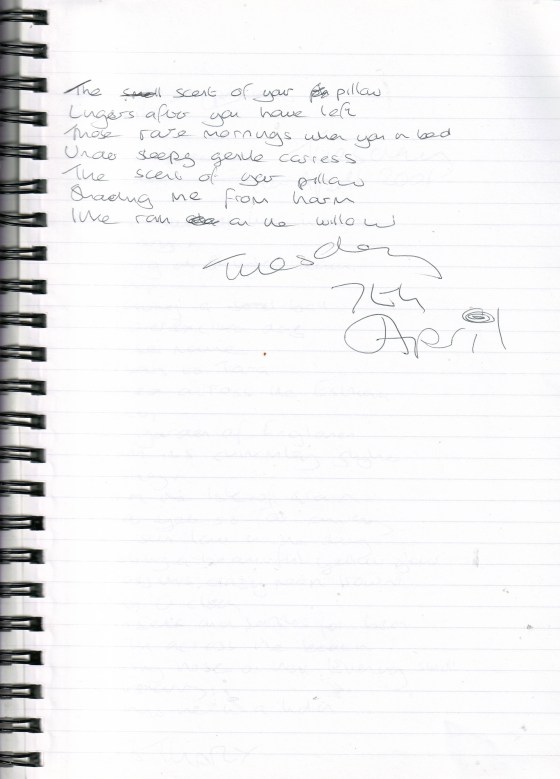 The smell scent of your pillow
Lingers after you have left
Those rare mornings when you in bed
Under sleepy gentle caress
The scent of your pillow
Shading me from harm
like rain on the willow
Tuesday
7th
April